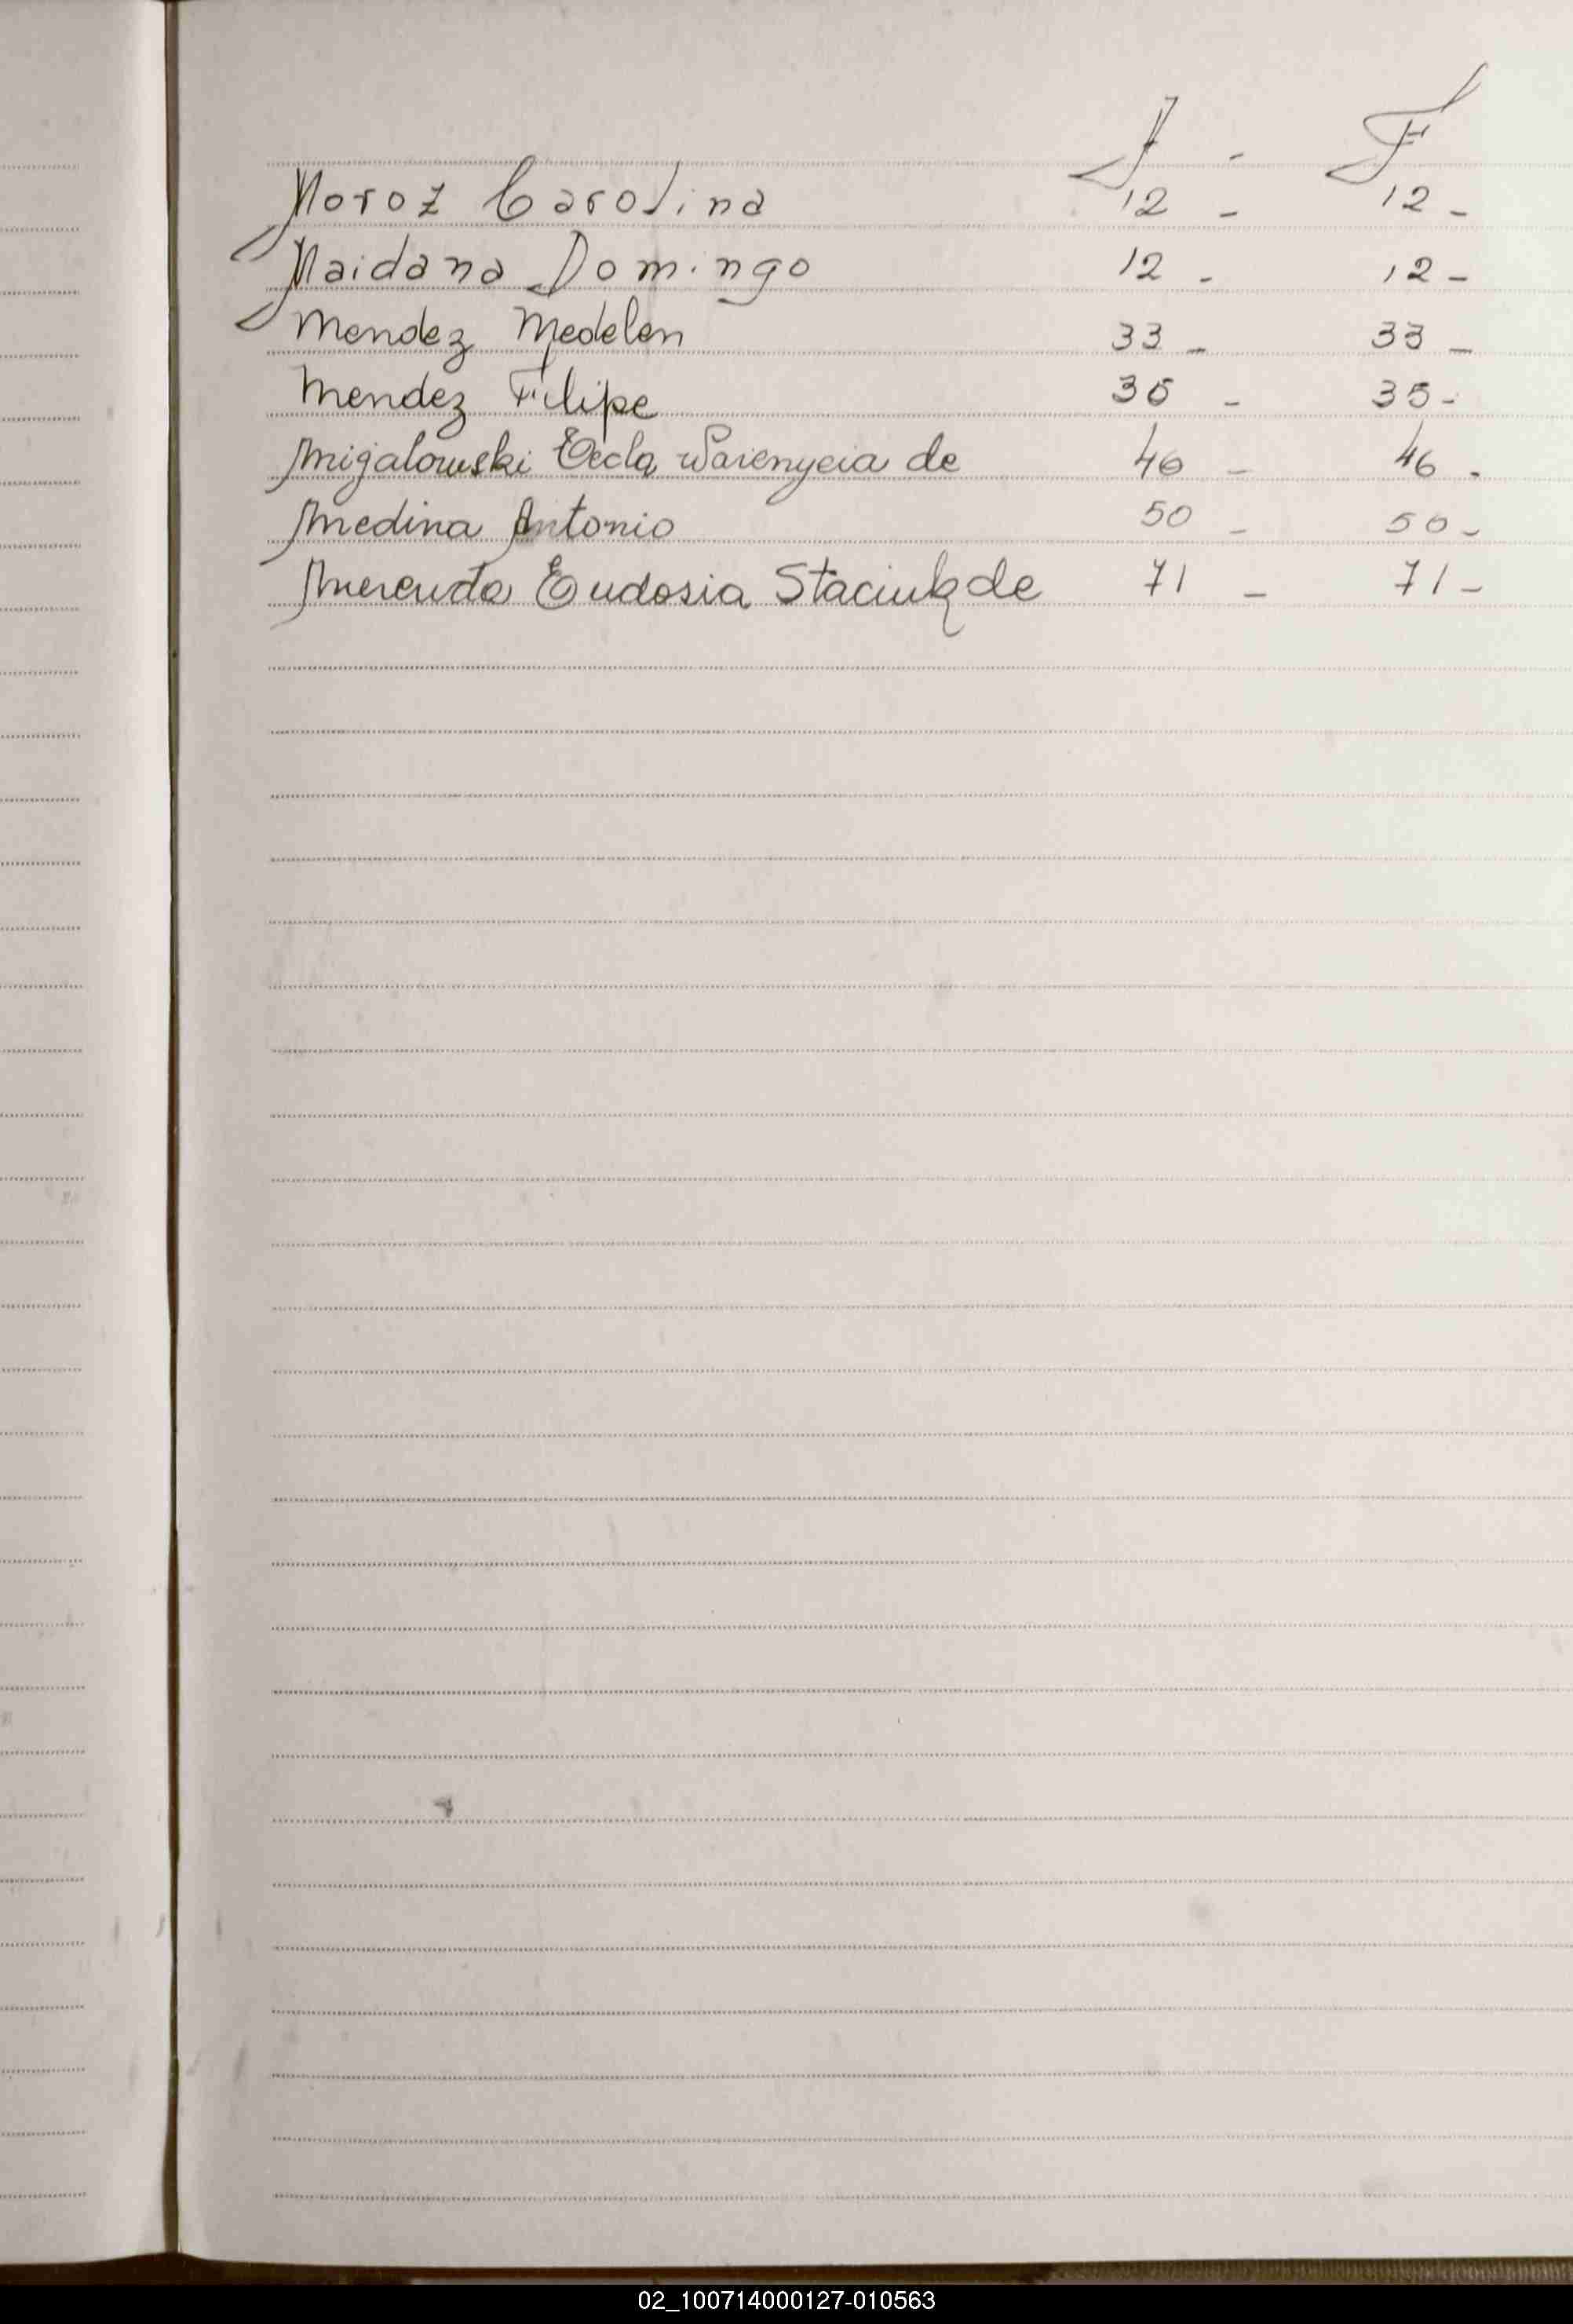 A - F
Moroz Carolina 12 - 12 -
Maidana Domingo 12 - 12 -
Mendez Medelen 33 - 33 -
Mendez Filipe 35 - 35 -
Migalowski Tecla Warenycia de 46 - 46 -
Medina Antonio 50 - 50 -
Merenda Eudosia Staciuk de 71 - 71 -
02_100714000127-010563